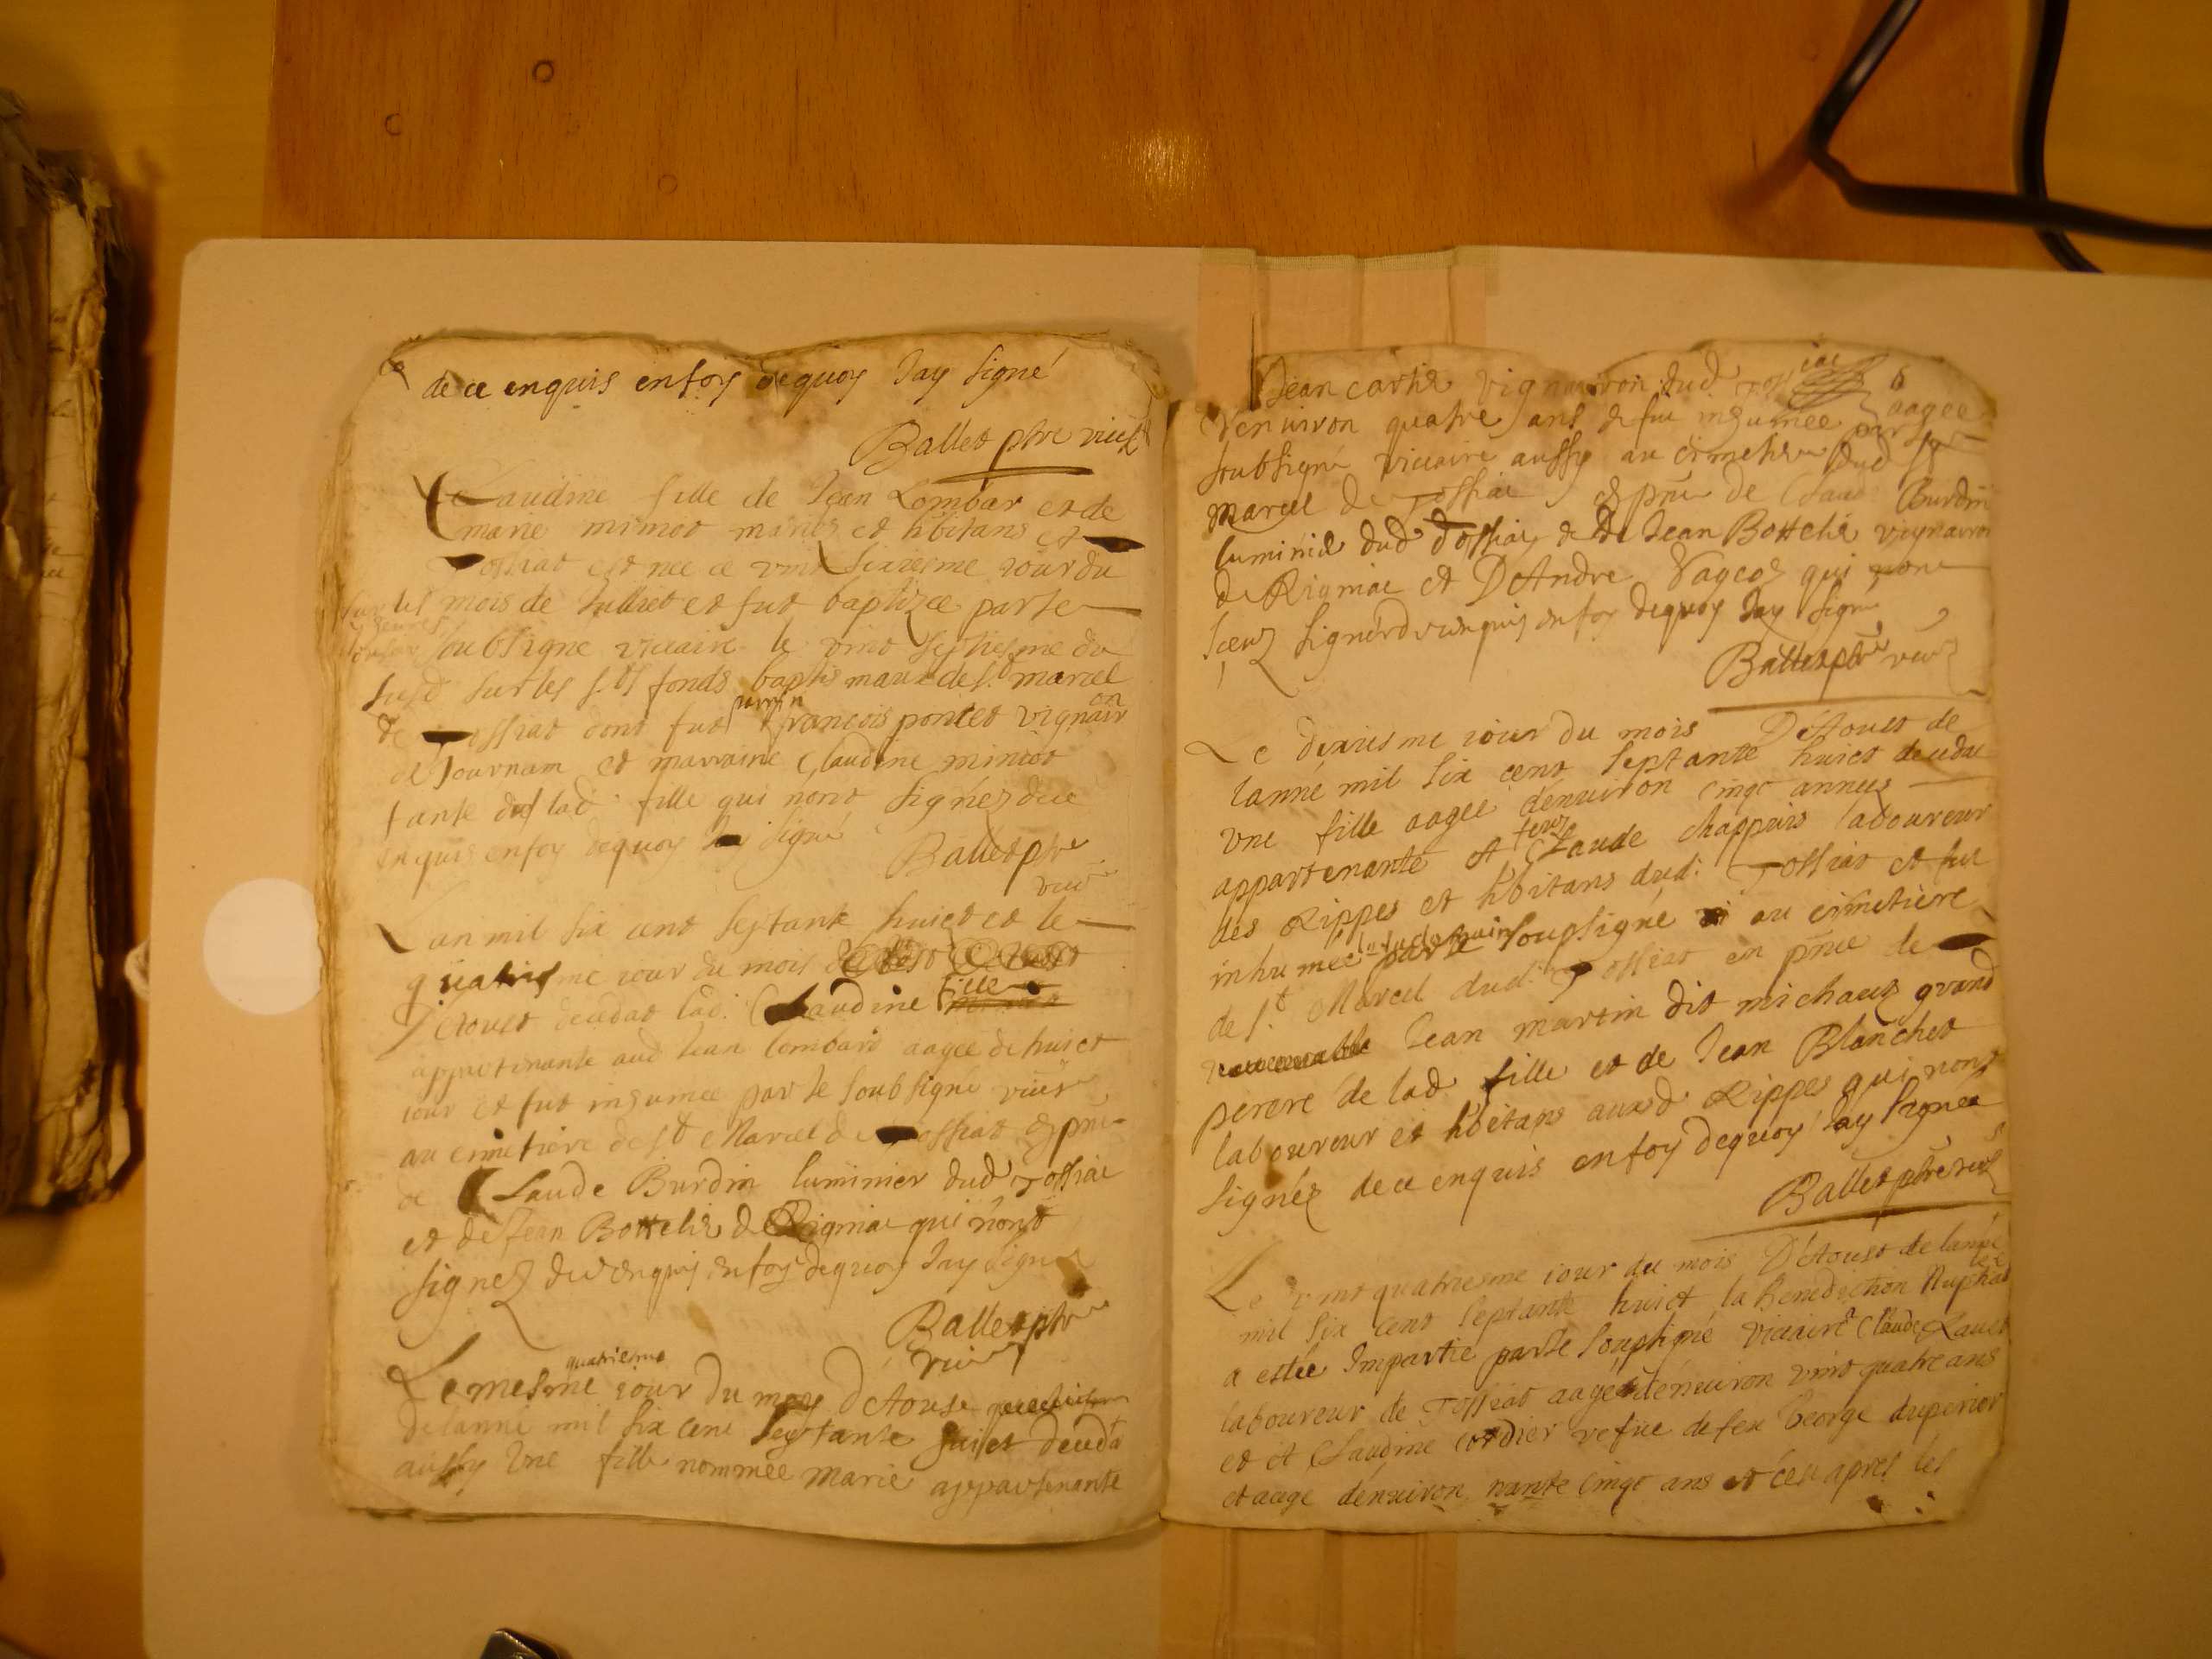 de ce enquis en foy dequoy Jay signé
Ballet ptre vicre
Claudine fille de Jean Lombar et de
marie mimot mariez et hbitans et
Tossiat est nee ce vint sixiesme iour du
mois de Juillet et fut baptizee par le
soubsigne viccaire le vint septiesme du
susd sur les sts fonds baptismaux de st marcel
de Tossiat dont fut parrin francois pontet vignairon
de Journam et marraine Claudine mimot
tante de lad fille qui nont signéz de ce
enquis en foy dequoy Jay signé
Ballet ptre
vicre
Lan mil six cent septante huict et le
quatriesme iour du mois
d'Aoust decedat lad. Claudine fille
appartenante aud Jean Lombard aagee de huict
iour et fut inhumee par le soubsigné vicre
au cimetiere de st Marcel de Tossiat en pnce
de Claude Burdin luminier dud Tossiat
et de Jean Bottelier de Rigniac qui nont
signez de ce enquis en foy dequoy Jay signé
Ballet ptre
vicre
quatriesme
Le mesme iour du moys d'Aoust
de lanné mil six cent septante huict deceda
aussy une fille nommée Marie appartenante
Jean cartier vignairon dud Tossiac aagee
d'enuiron quatre ans et fut inhumée par le
soubsigné viccaire aussy au cimetiere dud st
Marcel de Tossiac en pnce de Claude Burdin
luminier dud Tossiac et de Jean Bottelier vignairon
de Rigniac et D'Andre Vageoz qui nont
sceuz signér de ce enquis en foy dequoy Jay signé
Ballet ptre vicre
Le dixiesme iour du mois D'Aoust de
lanné mil six cent septante huict deceda
une fille aagee denuiron cinqt annees
appartenante et feuz Claude chappuis laboureur
des Rippes et hbitans dud. Tossiat et fut
inhumée le lendemain par le soupsigné au cimetiere
de st Marcel dud. Tossiat en pnce de
Jean martin dit michaux grand
perere de lad fille et de Jean Blanchet
laboureur et hbitans auxd Rippes qui nont
signéz de ce enquis en foy dequoy Jay signéz
Ballet ptre vicre
Le vint quatriesme iour du mois D'Aoust de lanné
mil six cent septante huict la Benediction Nuptialle
a estée Impartie par le soupsigné viccaire a Claude
laboureur de Tossiat aagé denuiron vint quatre ans
et et Claudine cordier vefue de feu George duperior
et aagé dénuiron trante cinqt ans et ce apres les